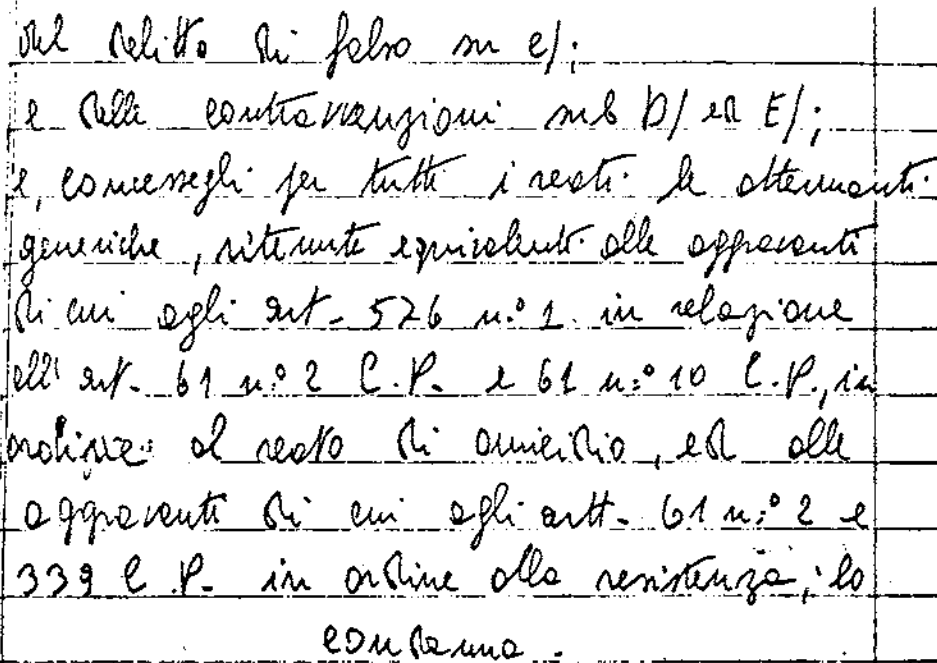 del delitto di falso sub C/;
e delle contravvenzioni sub D/ ed E/;
e, concessegli per tutti i reati le attenuanti
generiche, ritenute equivalenti alle aggravanti
di cui agli art. 576 n.° 1 in relazione
all'art. 61 n.° 2 C.P. e 61 n.° 10 C.P., in
ordine al reato di omicidio, ed alle
aggravanti di cui agli artt. 61 n.° 2 e
339 C.P. in ordine alla resistenza; lo
condanna.